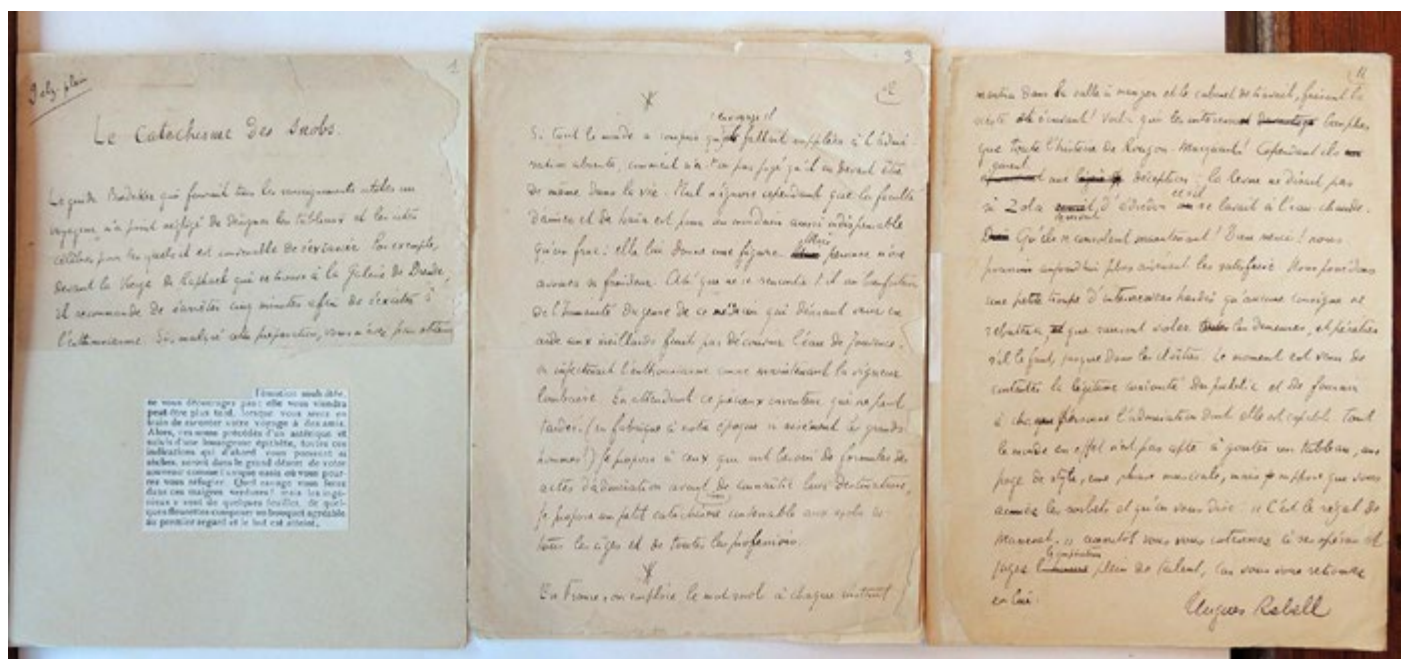 9 elz. plein
1
Le Catéchisme des Snobs.
Le guide Baedeker qui fournit tous les renseignements utiles au
voyageur, n'a point négligé de désigner les tableaux et les sites
célèbres pour lesquels il est convenable de s'extasier. Par exemple,
devant la Vierge de Raphaël qui se trouve à la Galerie de Dresde,
il recommande de s'arrêter cinq minutes afin de s'exciter à
l'enthousiasme. Si, malgré cette préparation, vous n'avez pu obtenir
l'émotion souhaitée,
ne vous découragez pas : elle vous viendra
peut-être plus tard, lorsque vous serez en
train de raconter votre voyage à des amis.
Alors, ces noms précédés d'un astérisque et
suivis d'une louangeuse épithète, toutes ces
indications qui d'abord vous parurent si
sèches, seront dans le grand désert de votre
souvenir comme l'unique oasis où vous pour-
rez vous réfugier. Quel ravage vous ferez
dans ces maigres verdures ! mais les ingé-
nieux s vent de quelques feuilles, de quel-
ques fleurettes composer un bouquet agréable
au premier regard et le but est atteint.
3
2
Si tout le monde a compris qu'il fallait suppléer à l'admi-
ration absente, comment n'a-t-on pas jugé qu'il en devait être
de même dans la vie. Nul n'ignore cependant que la faculté
d'aimer et de haïr est pour un mondain aussi indispensable
qu'un frac : elle lui donne une figure. Alors personne n'ose
avouer sa froideur. Ah ! que ne se rencontre-t-il un bienfaiteur
de l'humanité du genre de ce médecin qui désirant venir en
aide aux vieillards finit par découvrir l'eau de Jouvence.
on injecterait l'enthousiasme comme maintenant la vigueur
lombaire. En attendant ce précieux inventeur qui ne peut
tarder (on fabrique à notre époque si aisément les grands
hommes !) je propose à ceux qui ont besoin de formules des
actes d'admiration avant de connaître leur destinataire,
je propose un petit catéchisme convenable aux snobs de
tous les âges et de toutes les professions.
En France, on emploie le mot snob à chaque instant
11
mentra dans la salle à manger et le cabinet de travail, faisant la
sieste ou écrivant ! Voilà qui les intéresse plus
que toute l'histoire de Rougon-Macquart ! Cependant ils
eurent une déception ; la Revue ne disait pas
si Zola d'édredon et s'il se lavait à l'eau chaude.
Qu'ils se consolent maintenant ! Dieu merci ! nous
pouvons aujourd'hui plus aisément les satisfaire. Nous possédons
une petite troupe d'interviewers hardis qu'aucune consigne ne
rebuttera, que sauront violer les demeures, et pénétrer
s'il le faut, jusque dans les cloîtres. Le moment est venu de
contenter la légitime curiosité du public et de fournir
à chaque personne l'admiration dont elle est capable. Tout
le monde en effet n'est pas apte à goûter un tableau, une
page de style, une phrase musicale, mais je suppose que vous
aimiez les sorbets et qu'on vous dise : « C'est le régal de
Massenet. » aussitôt vous vous intéressez à ses opéras et
jugez le compositeur plein de talent, car vous vous retrouvez
en lui.
Hugues Rebell